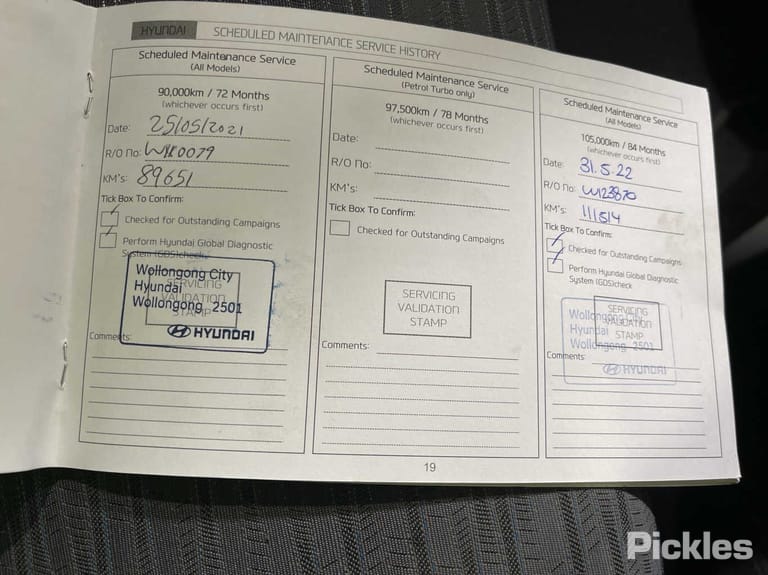 HYUNDAI SCHEDULED MAINTENANCE SERVICE HISTORY
Scheduled Maintenance Service
(All Models)
90,000km / 72 Months
(whichever occurs first)
Date: 25/05/2021
R/O No:
KM's: 89651
Tick Box To Confirm:
Checked for Outstanding Campaigns
Perform Hyundai Global Diagnostic
System (GDS)check
SERVICING
VALIDATION
STAMP
Wollongong City
Hyundai
Wollongong 2501
HYUNDAI
Comments:
Scheduled Maintenance Service
(Petrol Turbo only)
97,500km / 78 Months
(whichever occurs first)
Date:
R/O No:
KM's:
Tick Box To Confirm:
Checked for Outstanding Campaigns
SERVICING
VALIDATION
STAMP
Comments:
Scheduled Maintenance Service
(All Models)
105,000km / 84 Months
(whichever occurs first)
Date: 31.5.22
R/O No: W123870
KM's: 111514
Tick Box To Confirm:
Checked for Outstanding Campaigns
Perform Hyundai Global Diagnostic
System (GDS)check
SERVICING
VALIDATION
STAMP
Wollongong City
Hyundai
Wollongong 2501
HYUNDAI
Comments:
19
Pickles